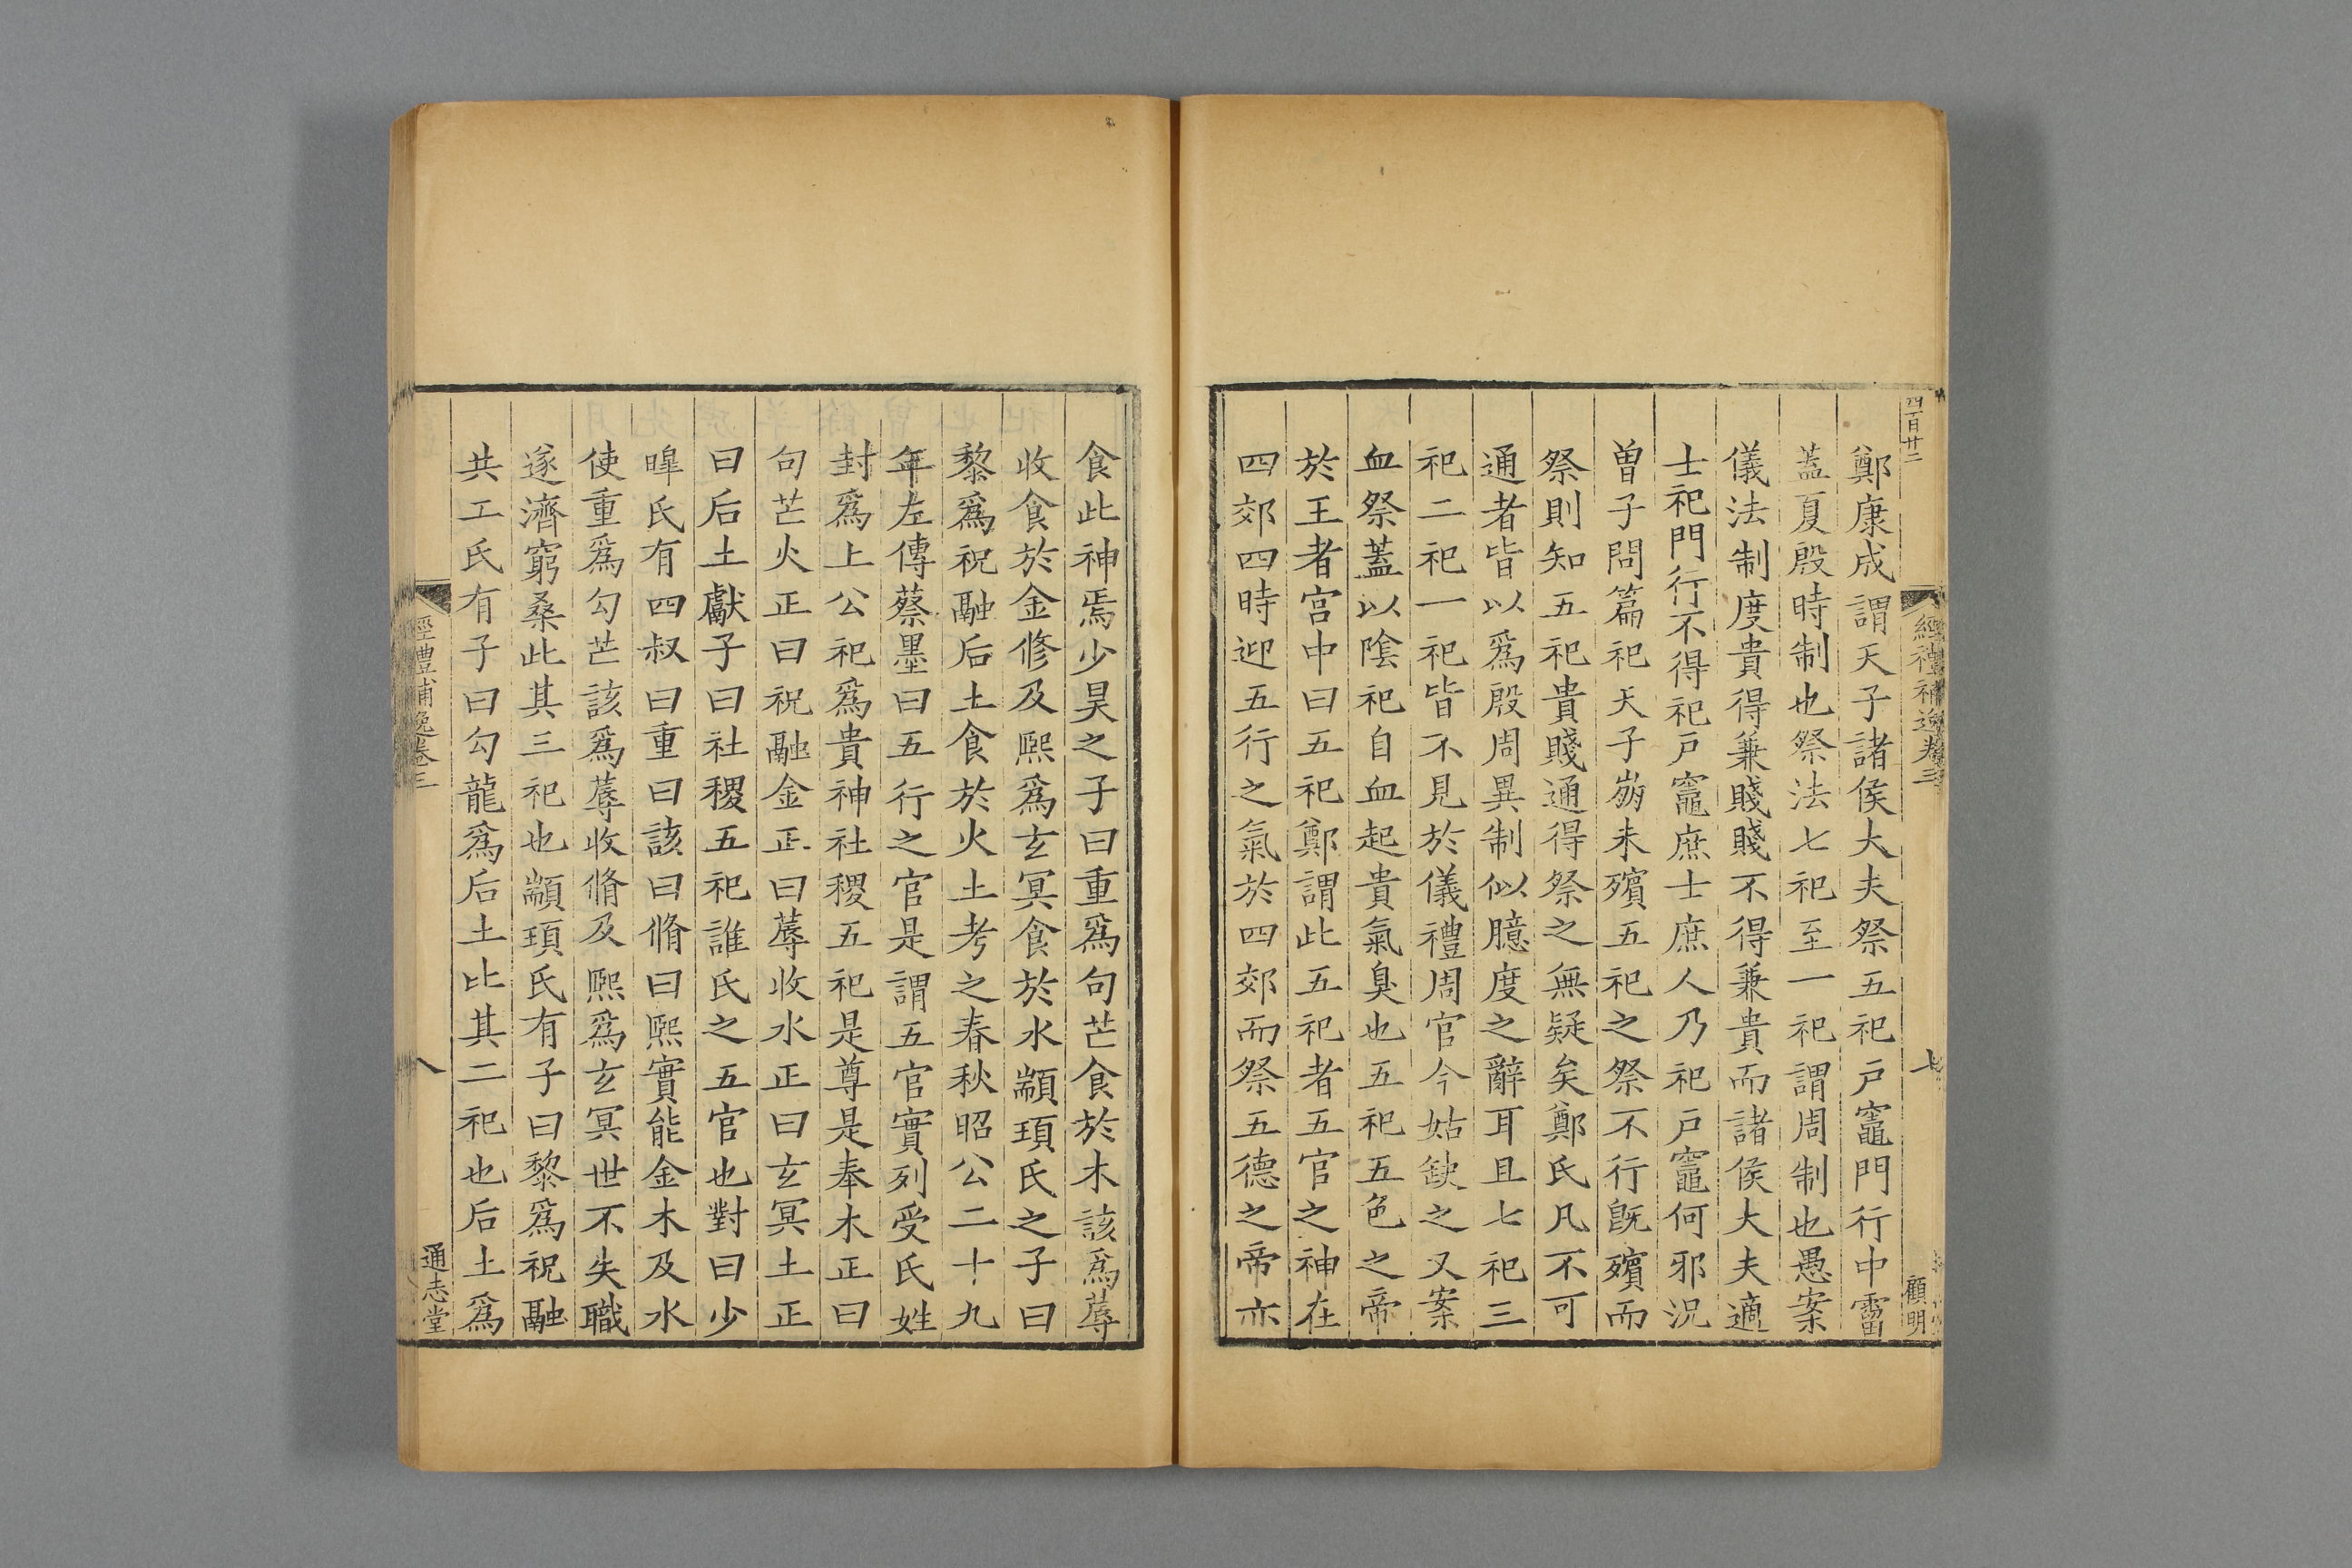 四百廿二
經禮補逸卷三
七
顧明
鄭康成謂天子諸侯大夫祭五祀戸竈門行中霤
蓋夏殷時制也祭法七祀至一祀謂周制也愚案
儀法制度貴得兼賤賤不得兼貴而諸侯大夫適
士祀門行不得祀戸竈庶士庶人乃祀戸竈何邪況
曾子問篇祀天子崩未殯五祀之祭不行既殯而
祭則知五祀貴賤通得祭之無疑矣鄭氏凡不可
通者皆以爲殷周異制似臆度之辭耳且七祀三
祀二祀一祀皆不見於儀禮周官今姑缺之又案
血祭蓋以陰祀自血起貴氣臭也五祀五色之帝
於王者宮中曰五祀鄭謂此五祀者五官之神在
四郊四時迎五行之氣於四郊而祭五德之帝亦
食此神焉少昊之子曰重爲句芒食於木該爲蓐
收食於金修及熙爲玄冥食於水顓頊氏之子曰
黎爲祝融后土食於火土考之春秋昭公二十九
年左傳蔡墨曰五行之官是謂五官實列受氏姓
封爲上公祀爲貴神社稷五祀是尊是奉木正曰
句芒火正曰祝融金正曰蓐收水正曰玄冥土正
曰后土獻子曰社稷五祀誰氏之五官也對曰少
皡氏有四叔曰重曰該曰脩曰熙實能金木及水
使重爲勾芒該爲蓐收脩及熙爲玄冥世不失職
遂濟窮桑此其三祀也顓頊氏有子曰黎爲祝融
共工氏有子曰勾龍爲后土比其二祀也后土爲
經禮補逸卷三
八
通志堂